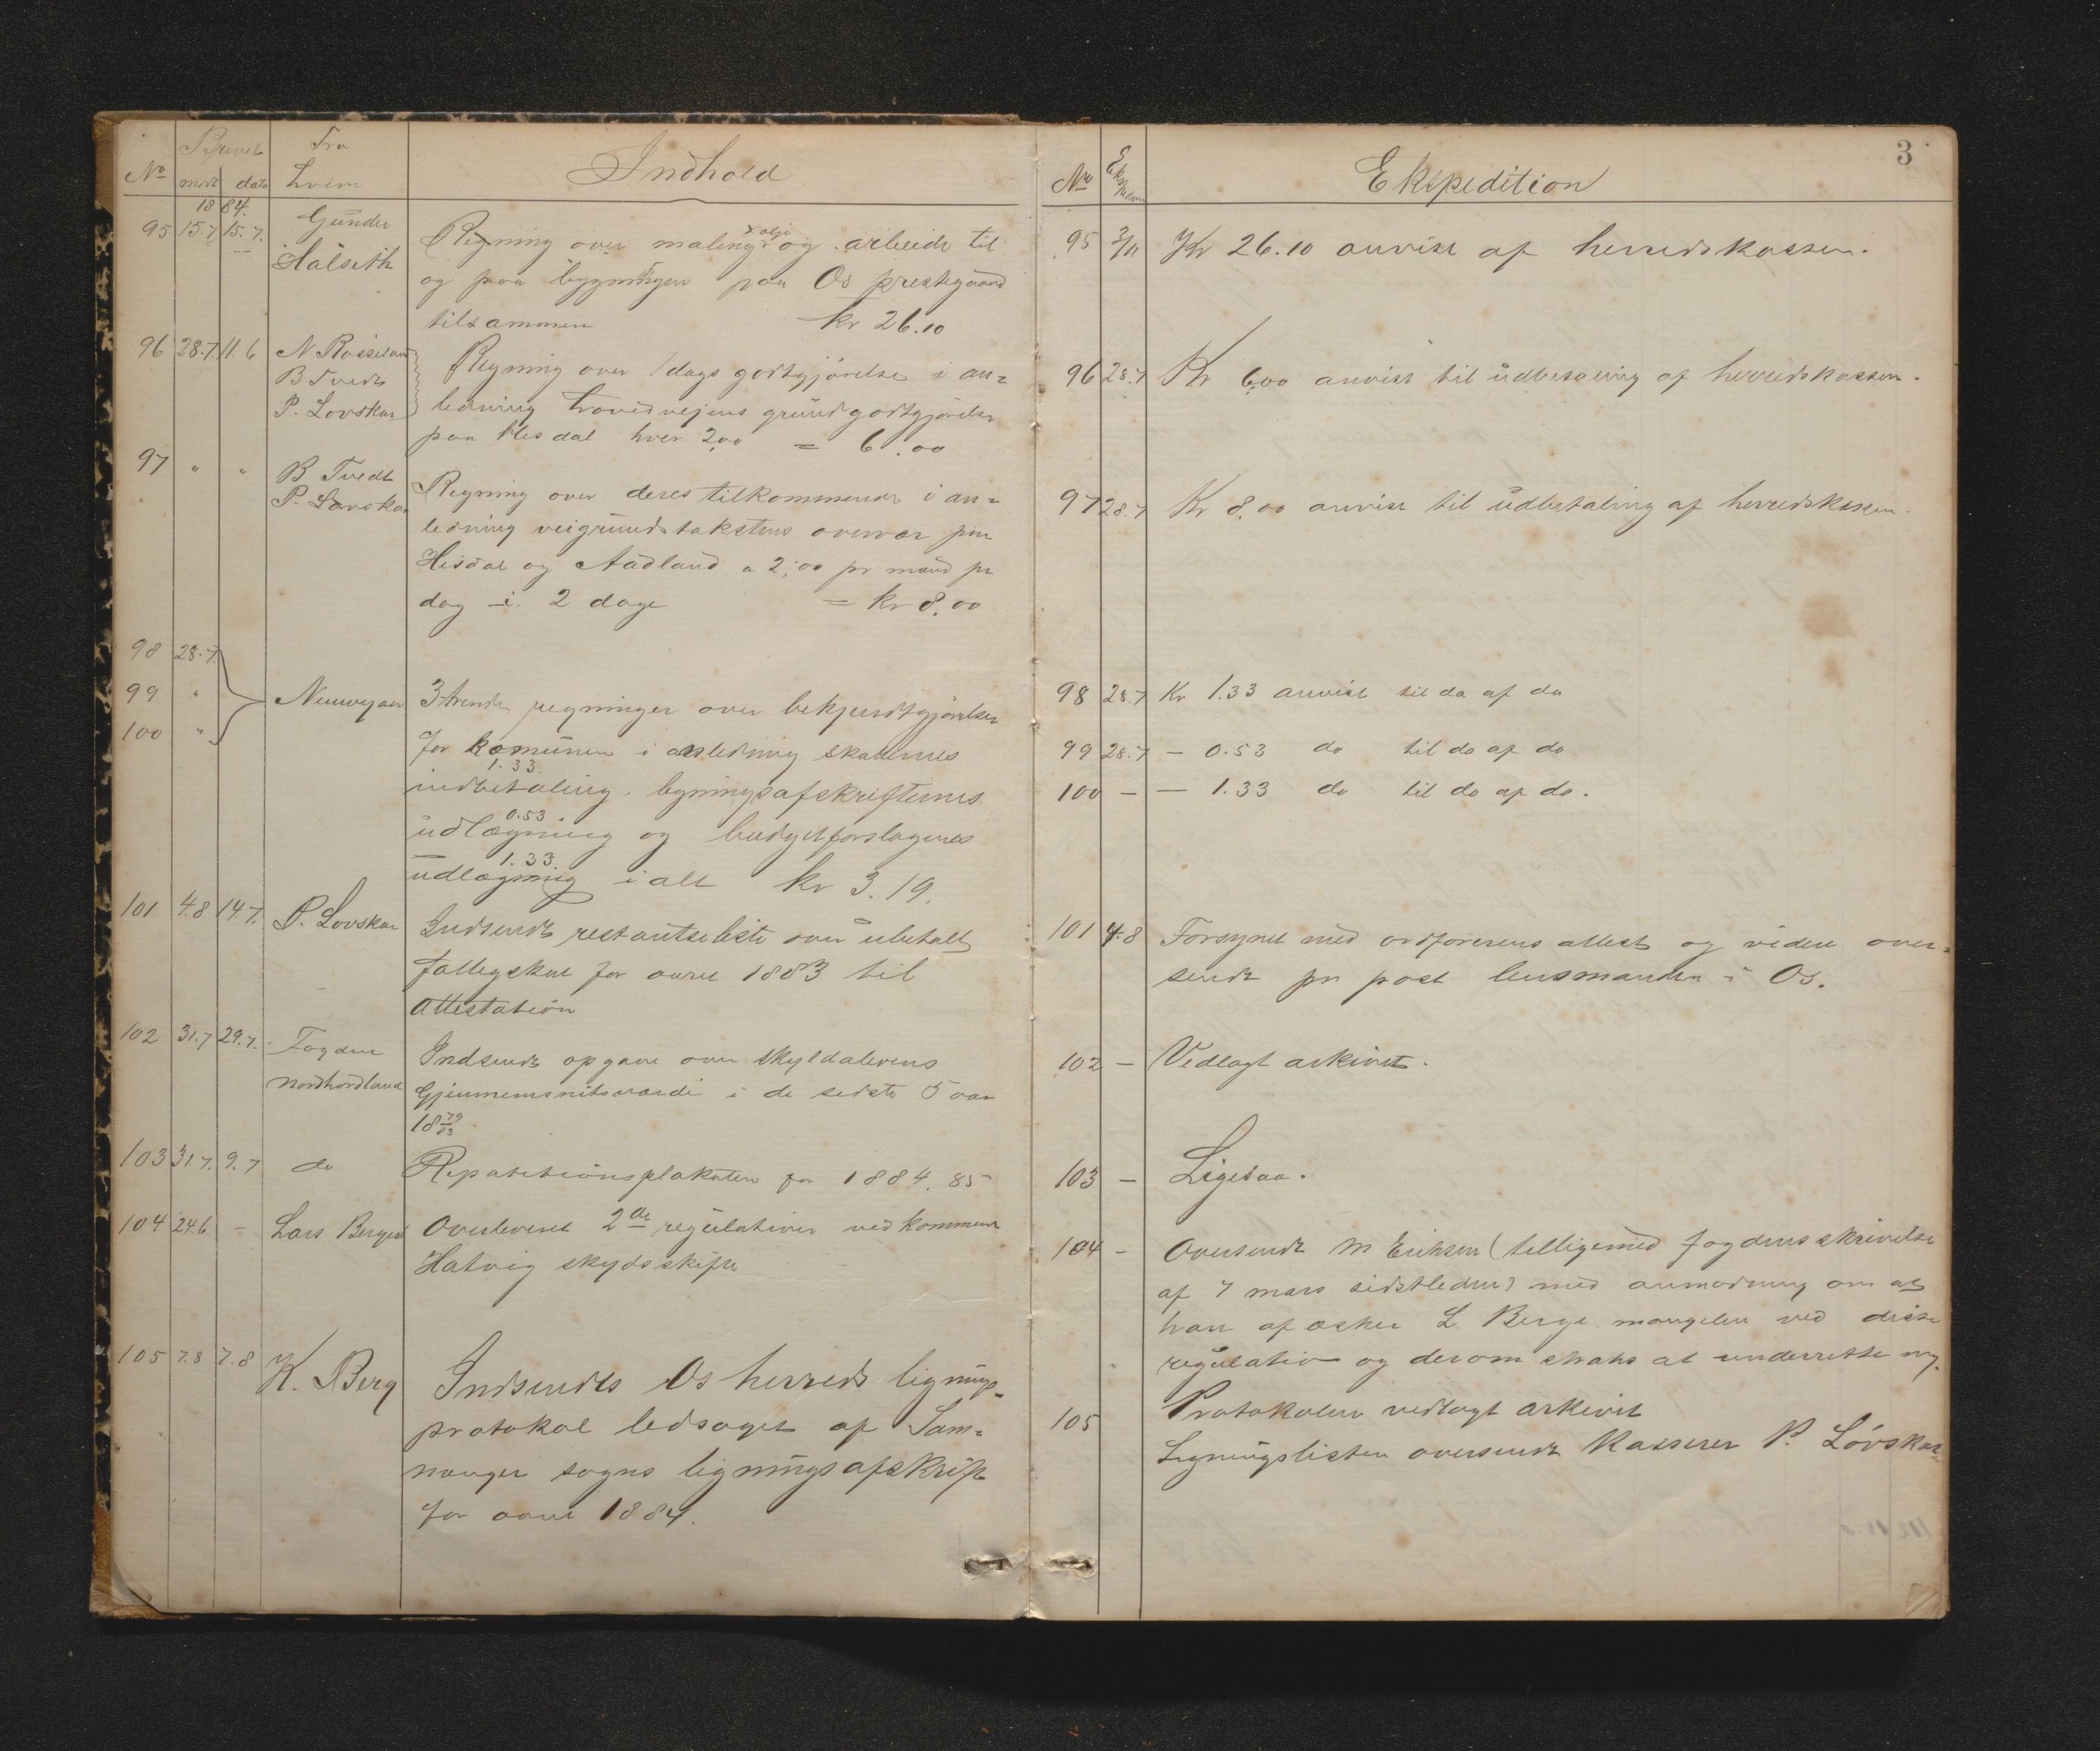 Brevet Fra
No modt dato hvem Indhold
1884.
95 15.7 15.7. Gunder Regning over maling & olje og arbeide til
Halseth og paa bygningen paa Os prestegaard
tilsammen kr 26.10
96 28.7. 11.6 N Røiseland Regning over 1 dags godtgjørelse i an=
B Tvedt ledning hovedvejens grundgodtgjørelse
P. Lovskar paa Hisdal hver 2,00 = 6.00
97 " " B Tvedt Regning over deres tilkommende i an=
P. Lovskar ledning veigrundstakstens overvær paa
Hisdal og Aadland a 2,00 pr mand pr
dag i 2 dage = kr 8.00
98 28.7.
99 " Neuwejaer 3 trende regninger over bekjendtgjørelser
100 " for komunen i anledning skatternes
1.33.
indbetaling. ligningsafskrifternes
0.53
udlægning og budgetforslagenes
1.33.
udlægning ialt kr 3.19.
101 4.8 14.7. P. Lovskar Indsendt restantseliste over ubetalt
fattigskat for aaret 1883 til
Attestation
102 31.7 29.7. Fogden Indsendt opgave over skyldalerens
Nordhordland Gjennemsnitsværdi i de sidste 5 aar
18 79/83
103 31.7. 9.7 do Repatitionsplakaten for 1884.85
104 24.6 – Lars Berge Overleveret 2de regulativer vedkommende
Hatvig skydsskifte
105 7.8 7.8 K. Berg Indsendes Os herreds lignings=
protokol ledsaget af Sam=
nanger sogns ligningsafskrift
for aaret 1884.
3
No Ekspederet Ekspedition
95 3/11 Kr 26.10 anvist af herredskassen.
96 28.7 Kr 6,00 anvist til udbetaling af herredskassen.
97 28.7 Kr 8,00 anvist til udbetaling af herredskassen.
98 28.7 Kr 1.33 anvist til do af do
99 28.7 – 0.53 do til do af do
100 – – 1.33 do til do af do.
101 4.8 Forsynet med ordførerens attest og videre over=
sendt pr post lensmanden i Os.
102 – Vedlagt arkivet.
103 – Ligesaa.
104 – Oversendt M Erichsen (tilligemed fogdens skrivelse
af 7 mars sidstleden) med anmodning om at
han af æsker L Berge mangelen ved disse
regulativ og derom straks at underrette mig.
105 Protokolen vedlagt arkivet
Ligningslisten oversendt Kasserer P. Lövskar